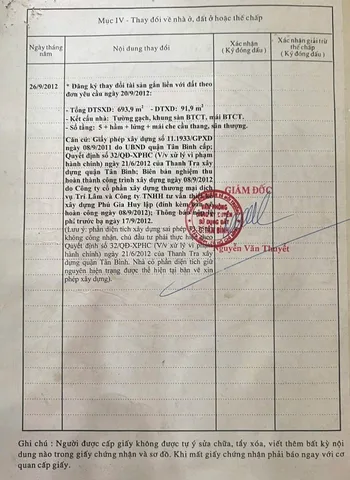 Mục IV - Thay đổi về nhà ở, đất ở hoặc thế chấp
Ngày tháng năm
Nội dung thay đổi
Xác nhận (Ký đóng dấu)
Xác nhận giải trừ thế chấp (Ký đóng dấu)
26/9/2012
* Đăng ký thay đổi tài sản gắn liền với đất theo
đơn yêu cầu ngày 20/9/2012:
- Tổng DTSXD: 693,9 m² - DTXD: 91,9 m²
- Kết cấu nhà: Tường gạch, khung sàn BTCT, mái BTCT.
- Số tầng: 5 + hầm + lửng + mái che cầu thang, sân thượng.
Căn cứ: Giấy phép xây dựng số 11.1933/GPXD
ngày 08/9/2011 do UBND quận Tân Bình cấp;
Quyết định số 32/QĐ-XPHC (V/v xử lý vi phạm
hành chính) ngày 21/6/2012 của Thanh Tra xây
dựng quận Tân Bình; Biên bản nghiệm thu
hoàn thành công trình xây dựng ngày 08/9/2012
do Công ty cổ phần xây dựng thương mại dịch
vụ Trí Lâm và Công ty TNHH tư vấn thiết kế
xây dựng Phú Gia Huy lập (đính kèm bản vẽ
hoàn công ngày 08/9/2012); Thông báo
phí trước bạ ngày 17/9/2012.
(Lưu ý: phần diện tích xây dựng sai phép
không công nhận, chủ đầu tư phải thực hiện theo
Quyết định số 32/QĐ-XPHC (V/v xử lý vi phạm
hành chính) ngày 21/6/2012 của Thanh Tra xây
dựng quận Tân Bình. Nhà có phần diện tích giữ
nguyên hiện trạng được thể hiện tại bản vẽ xin
phép xây dựng).
GIÁM ĐỐC
VĂN PHÒNG
ĐĂNG KÝ QUYỀN
SỬ DỤNG ĐẤT
Q. TÂN BÌNH
Nguyễn Văn Thuyết
Ghi chú : Người được cấp giấy không được tự ý sửa chữa, tẩy xóa, viết thêm bất kỳ nội
dung nào trong giấy chứng nhận và sơ đồ. Khi mất giấy chứng nhận phải báo ngay với cơ
quan cấp giấy.